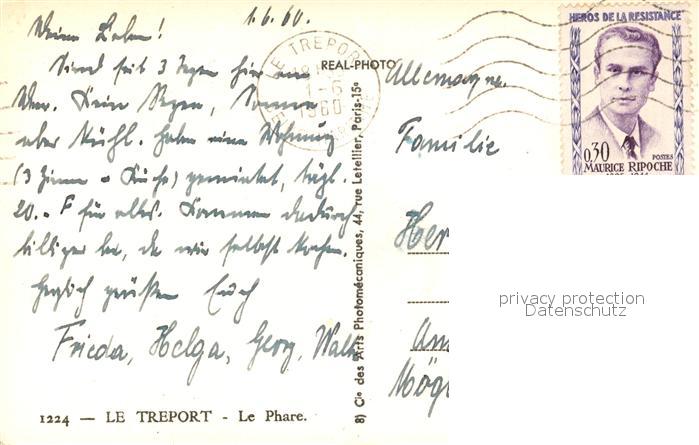 Meine Lieben!
1.6.60.
Sind seit 3 Tagen hier am
Meer. Kein Regen, Sonne
aber kühl. Haben eine Wohnung
(3 Zimmer + Küche) gemietet, tägl.
20.- F für alles. Kommen dadurch
billiger bei, da wir selbst kochen.
Herzlich grüßen Euch
Frieda, Helga, Georg, Walter
1224 — LE TREPORT - Le Phare.
REAL-PHOTO
8) Cie des Arts Photomécaniques, 44, rue Letellier, Paris-15e
LE TREPORT
1-6
1960
HEROS DE LA RESISTANCE
0,30
POSTES
MAURICE RIPOCHE
Allemagne.
Familie
Her
Mög
privacy protection
Datenschutz